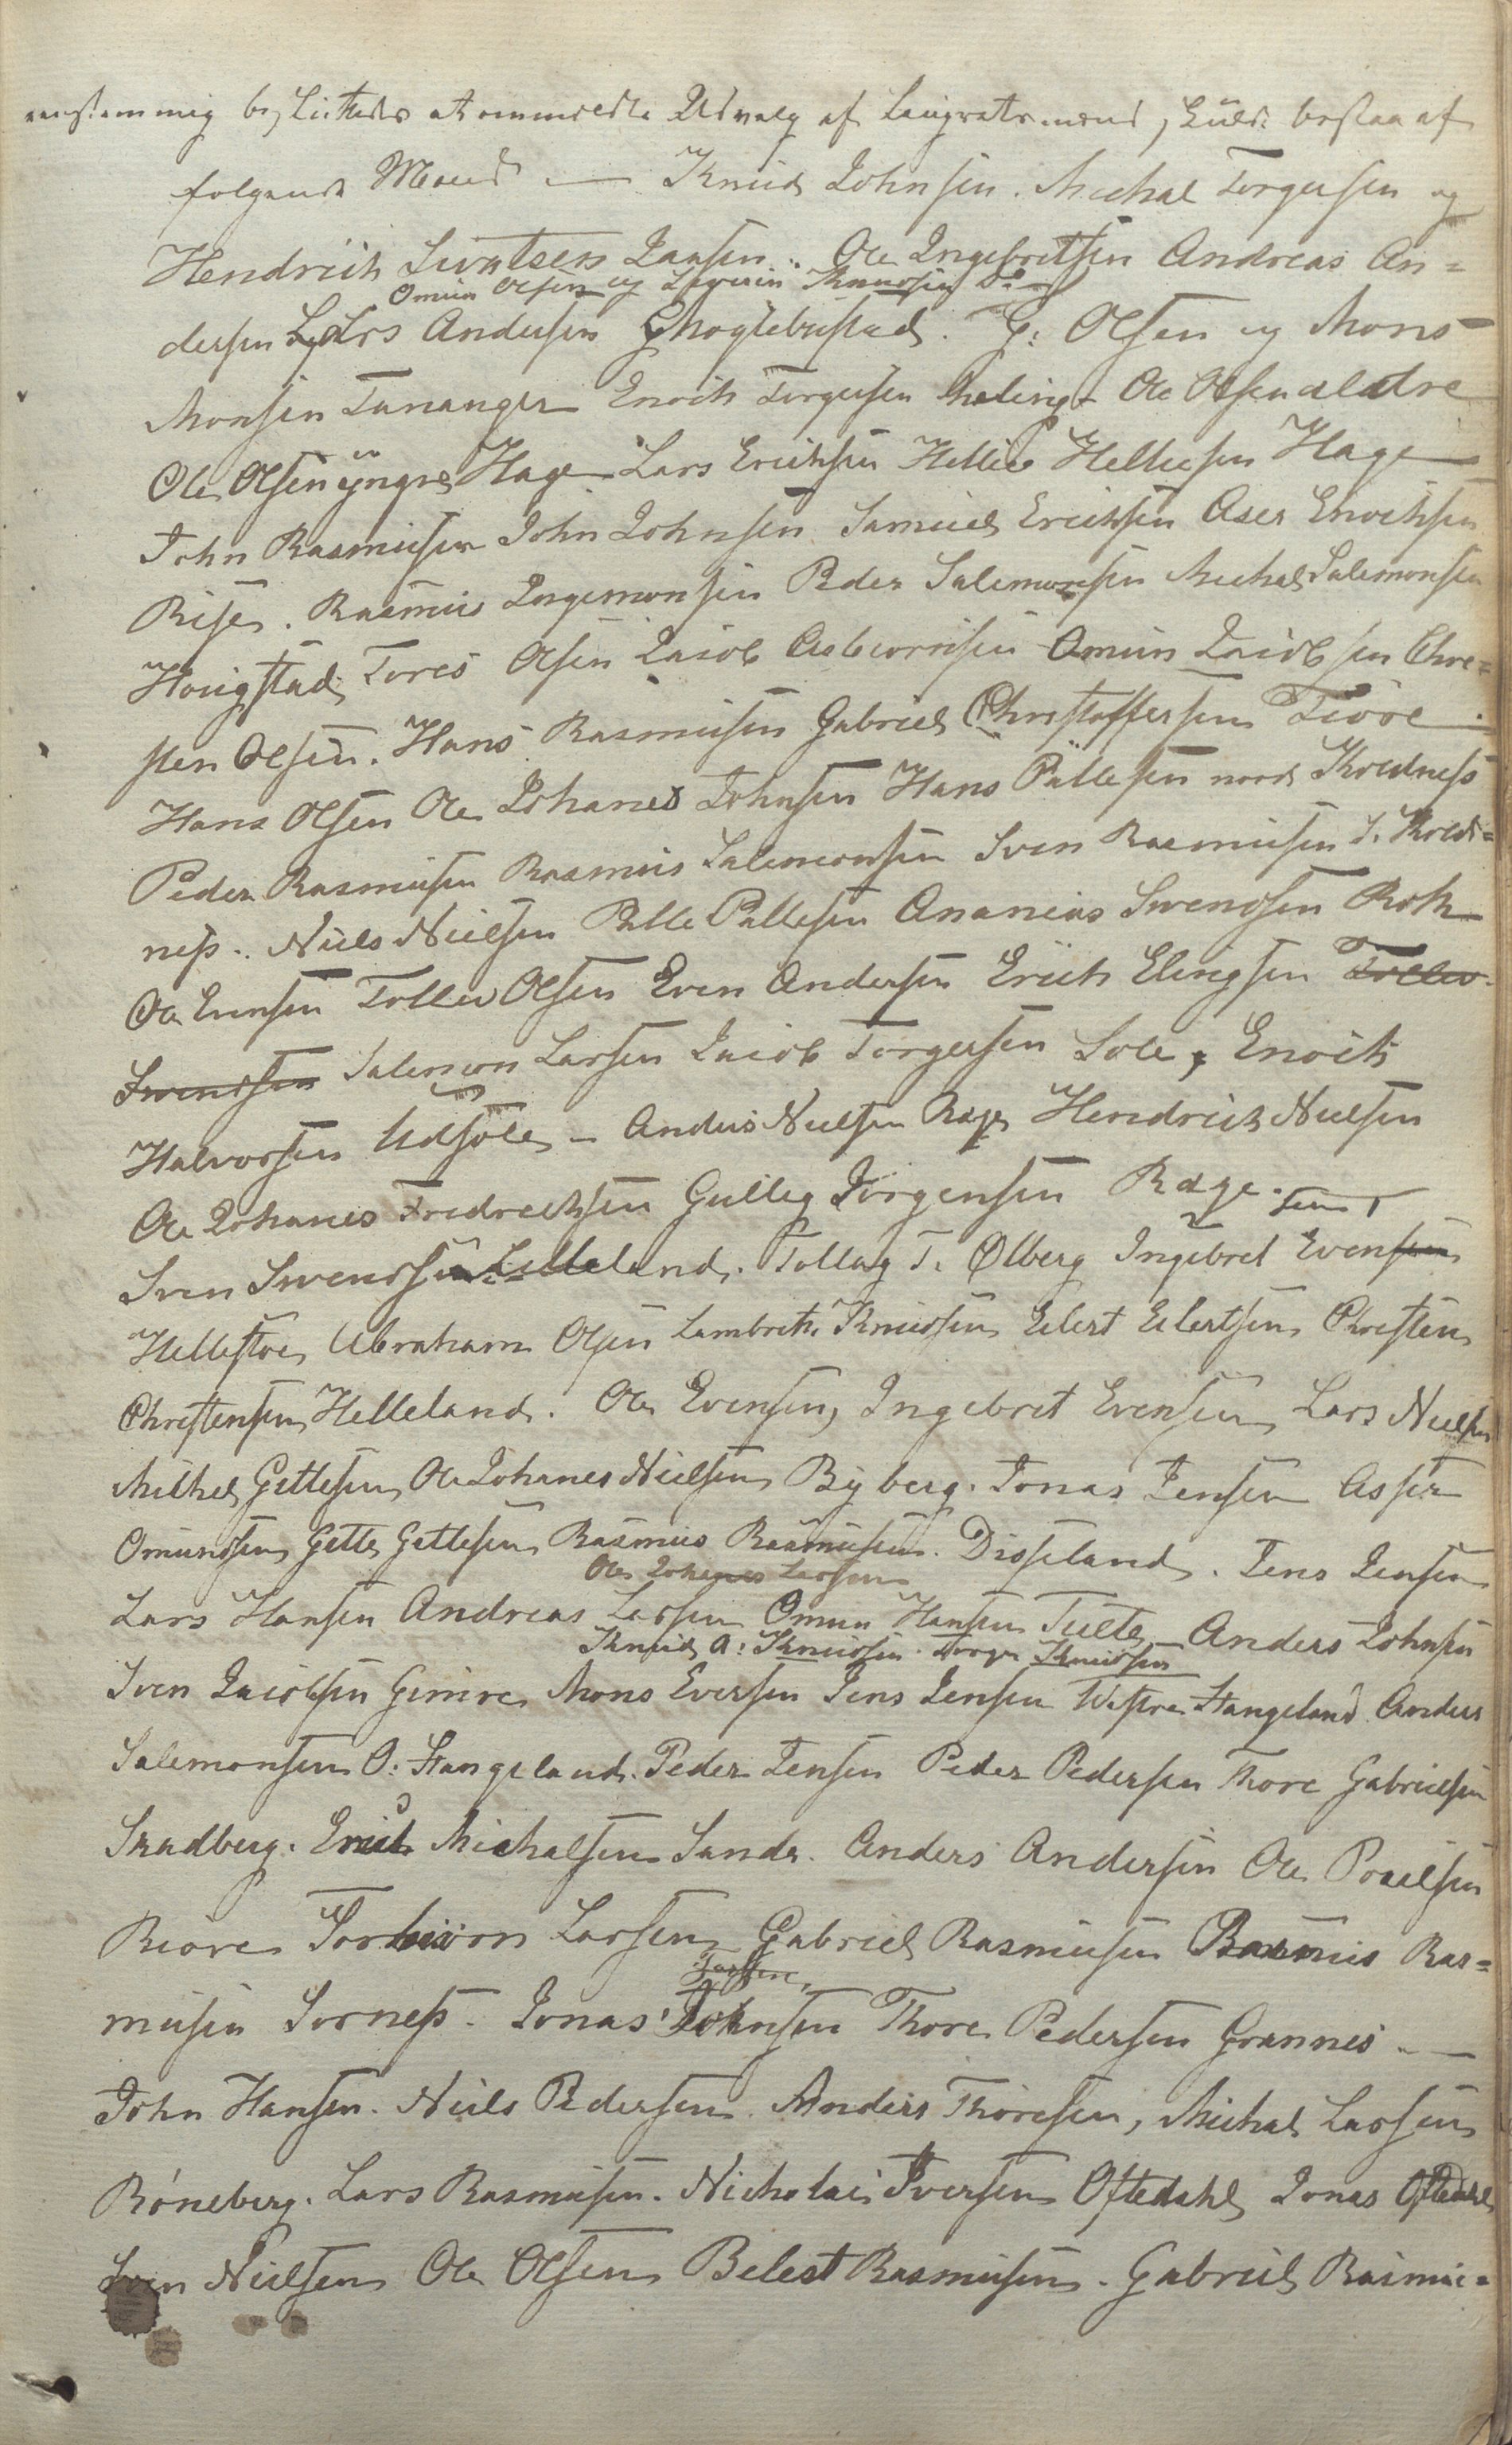 eenstemmig besluttedes at ommeldte Udvalg af Laugrets-mænd skulde bestaa af
følgende Mænd — Knud Johnsen. Michal Torgersen og
Hendrich Sivertsen Jaasun. Ole Ingebretsen Andreas An=
Omun Olsen og Severin Knudsen Do
dersen Lars Andersen Myklebustad. G: Olsen og Mons
Monsen Tananger Enoch Torgersen Meling Ole Olsen ældre
Ole Olsen yngre Haga Lars Erichsen Hellie Helliesen Haga
John Rasmusen John Johnsen Samuel Erichsen Aser Enochsen
Risa. Rasmus Ingemonsen Peder Salemonsen Michal Salemonsen
Hougstad Tores Olsen Jacob Asbiørnsen Omun Jacobsen Chre=
sten Olsen. Hans Rasmusen Gabriel Christoffersen Tiøre.
Hans Olsen Ole Johanes Johnsen Hans Pallesen nord Koldness
Peder Rasmusen Rasmus Salemonsen Sven Rasmusen S. Kold=
ness. Niels Nielsen Palle Pallesen Ananias Svendsen Roth
Ole Evensen Tollev Olsen Even Andersen Erich Elingsen Tollev
Svendsen Salemon Larsen Jacob Torgersen Sole, Enoch
Halvorsen Udsole — Anders Nielsen Rage Hendrich Nielsen
Ole Johanes Fredrechsen Gulleg Jørgensen Rage.
Sven Svendsen Lilleland. Tollag T. Ølberg Ingebret Evensen
Hellestøe Abraham Olsen Lambrect Knudsen Eilert Eilertsen Christen
Christensen Helleland. Ole Evensen, Ingebret Evensen Lars Nielsen
Michel Gittlesen Ole Johanes Nielsen Byberg. Jonas Jensen Asser
Omundsen Gitle Gitlesen Rasmus Rasmusen. Dysjeland. Jens Jensen
Ole Johanes Larsen
Lars Hansen Andreas Larsen Omun Hansen Tielte Anders Johnsen
Knud A: Knudsen. Torger Knudsen
Sven Jacobsen Gimre Mons Eversen Jens Jensen Westre Stangeland Anders
Salemonsen O: Stangeland. Peder Jensen Peder Pedersen Thore Gabrielsen
Skadberg. Erich Michalsen Sande. Anders Andersen Ole Povelsen
Riøre Torbiørn Larsen Gabriel Rasmusen Rasmus Ras=
musen Sørness. Jonas Johnsen Thore Pedersen Grannes —
John Hansen. Niels Pedersen. Anders Thoresen, Michal Larsen
Røneberg. Lars Rasmusen. Nicholai Iversen Oftedahl Jonas Oftedahl
Sven Nielsen Ole Olsen Belest Rasmusen. Gabriel Rasmu=